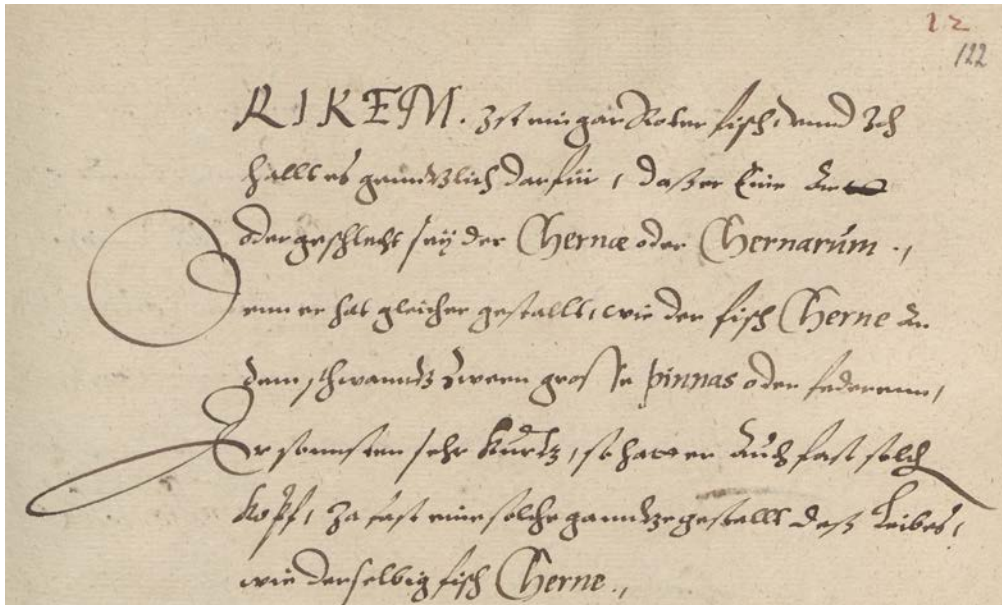 12
122
RIKEM. Ist ein gar Roter fisch, unnd Ich
hallt es genntzlich darfür, daß er Eine Art
oder geschlecht seÿ der Chernæ oder Chernarum.,
Denn er hat gleicher gestallt, wie der fisch Cherne An
dem schwanntz Zween grosse pinnas oder federenn,
Er sonnsten sehr kurtz, so hatt er Auch fast solch
kopff, Ja fast eine solche ganntze gestallt deß Leibes,
wie derselbig fisch Cherne.,